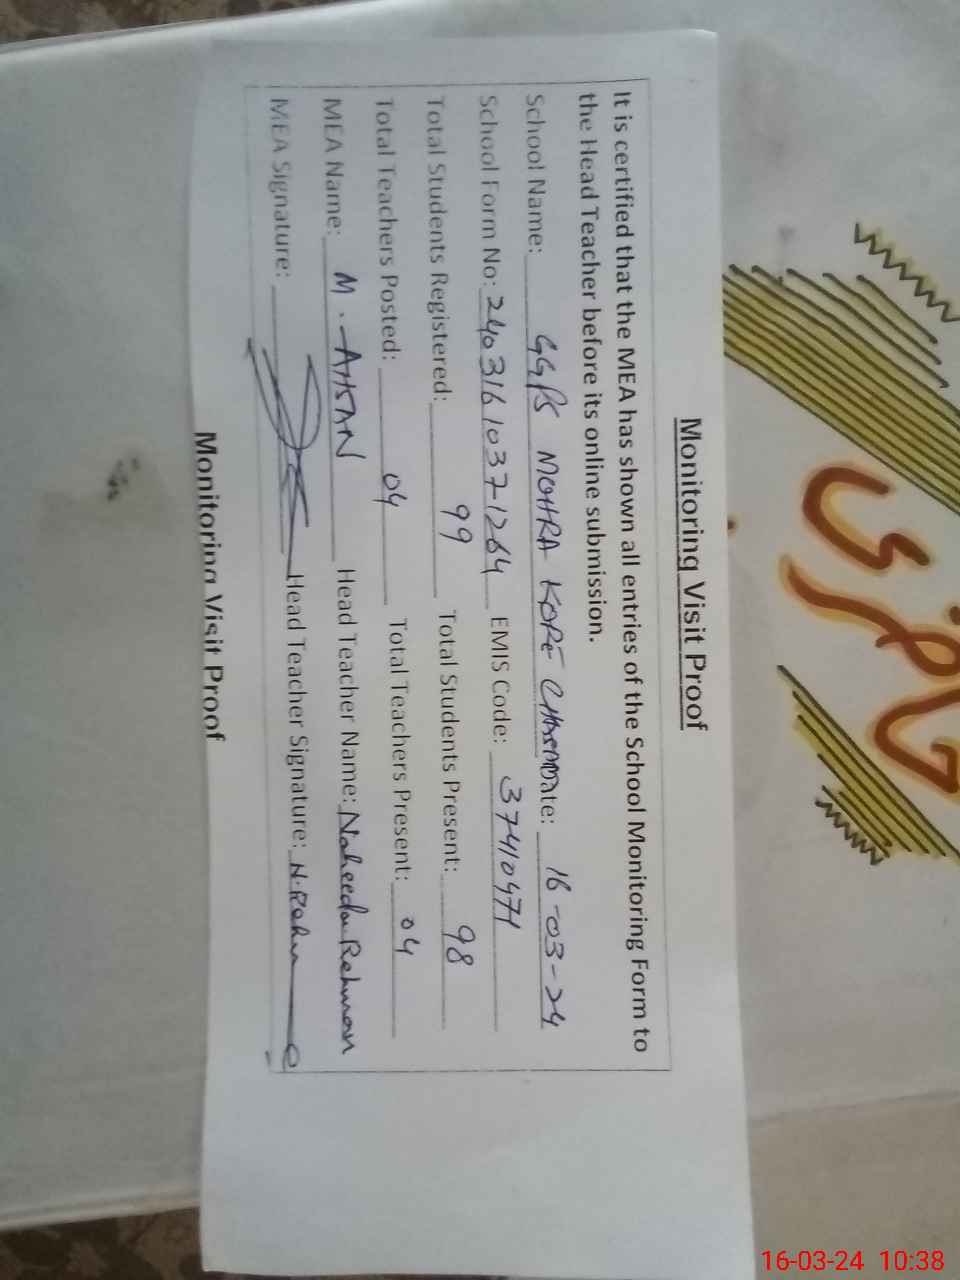 Monitoring Visit Proof
It is certified that the MEA has shown all entries of the School Monitoring Form to
the Head Teacher before its online submission.
School Name: GGPS MOHRA Date: 16-03-24
School Form No: 240316 1037-1264 EMIS Code: 37410471
Total Students Registered: 99 Total Students Present: 98
Total Teachers Posted: 04 Total Teachers Present: 04
MEA Name: M. AHSAN Head Teacher Name: Naheeda Rehman
MEA Signature: Head Teacher Signature: N. Rehm
Monitoring Visit Proof
16-03-24 10:38